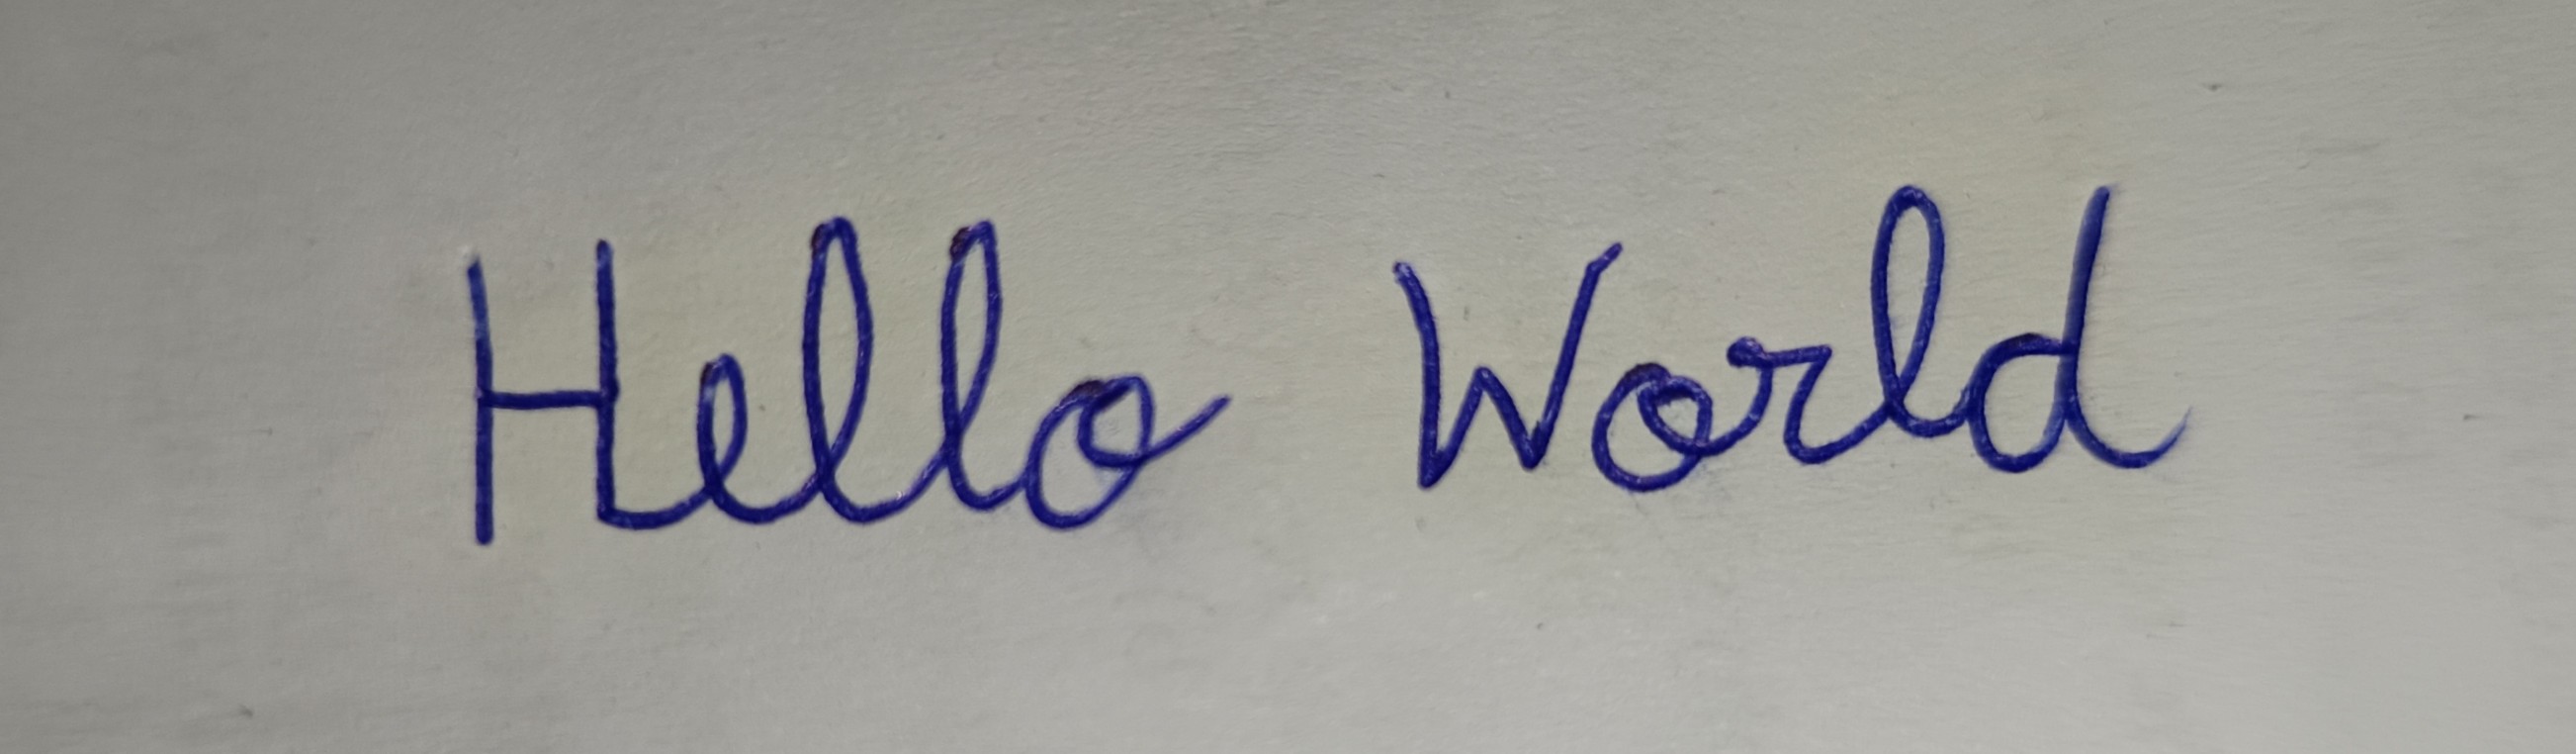 Hello World